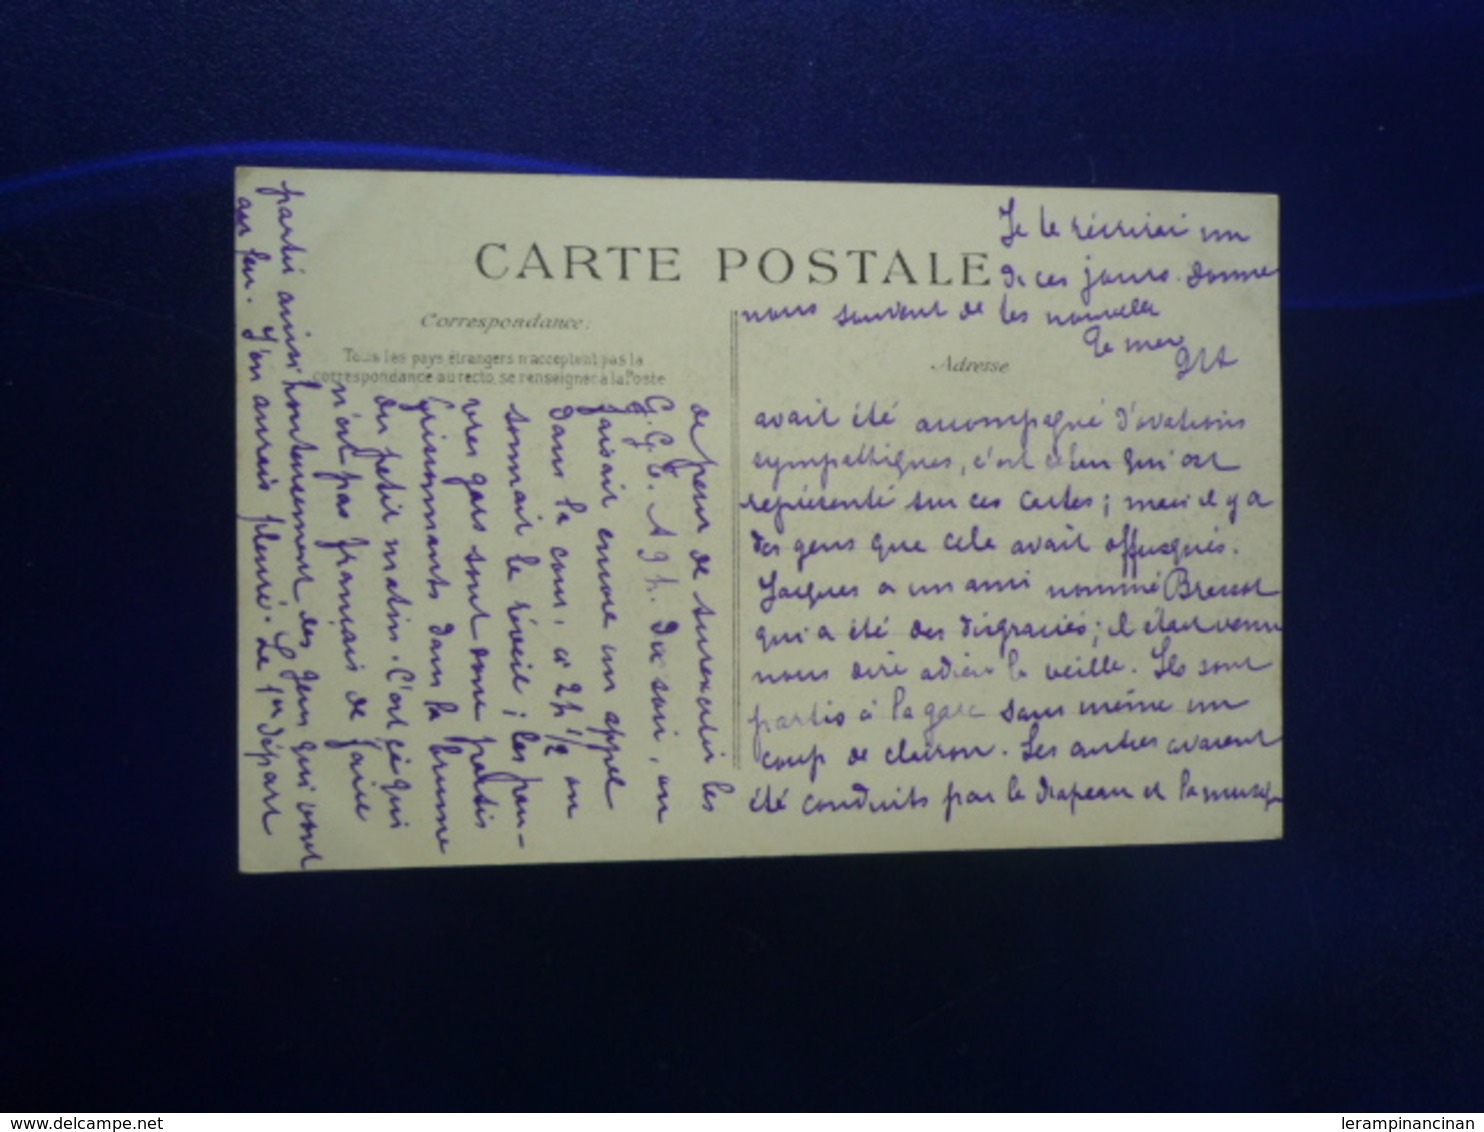 CARTE POSTALE
Correspondance:
Tous les pays étrangers n'acceptent pas la
correspondance au recto, se renseigner à la Poste
Adresse
de peur de surexciter les
G.G.T. A 9 h. du soir, on
faisait encore un appel
dans la cour, à 2h 1/2 on
sonnait le réveil ; les pau-
vres gars sont donc partis
frissonnants dans la brume
du petit matin. C'est ce qui
n'est pas français de faire
partir ainsi honteusement des gens qui vont
au feu. J'en aurais pleuré. Le 1er départ
avait été accompagné d'ovations
sympathiques, c'est celui qui est
représenté sur ces cartes ; mais il y a
des gens que cela avait offusqués.
Jacques a un ami nommé
qui a été des disgraciés ; il était venu
nous dire adieu la veille. Ils sont
partis à la gare sans même un
coup de clairon. Les autres avaient
été conduits par le drapeau et la musique
Je te récrirai un
de ces jours. Donne
nous souvent de tes nouvelles
Ta mère
delcampe.net
lerampinancinan